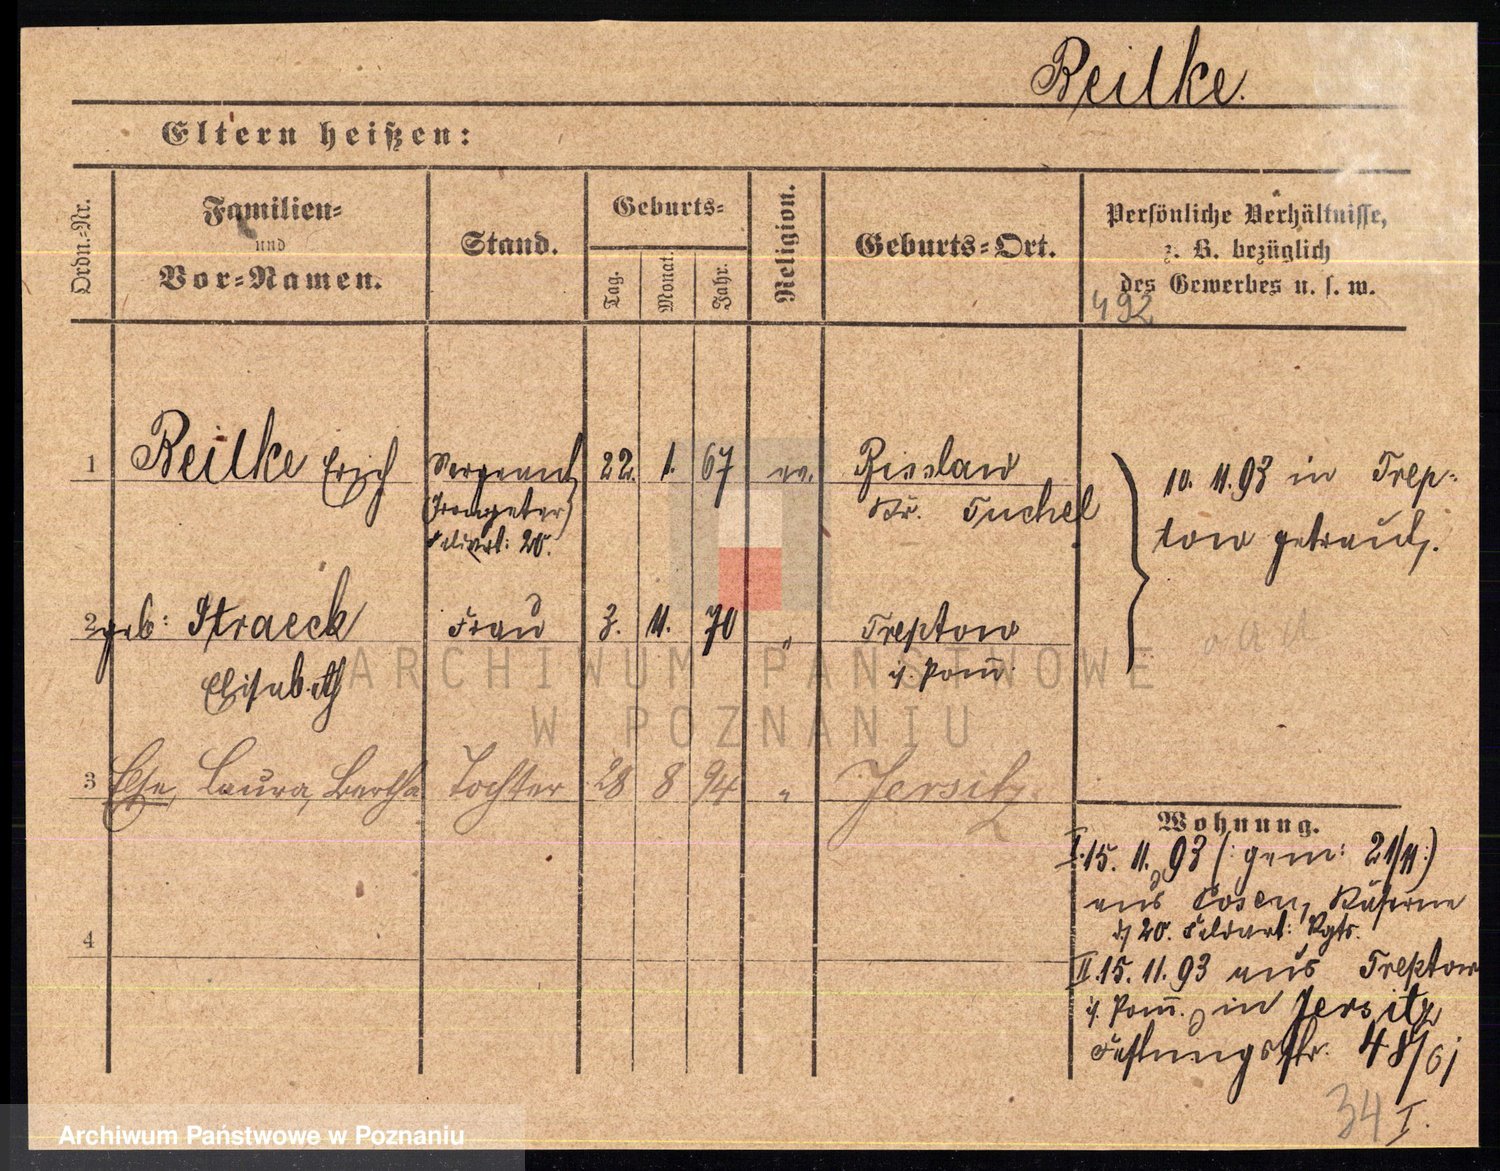 Beilke.
Eltern heißen:
Ordn.-Nr.
Familien-
und
Vor-Namen.
Stand.
Geburts-
Tag.
Monat.
Jahr.
Religion.
Geburts-Ort.
Persönliche Verhältnisse,
z. B. bezüglich
des Gewerbes u. s. w.
492
1 Beilke Erich Sergeant 22. 1. 67 ev. Bisslaw
(Trompeter) Kr. Tuchel
Feldart: 20.
10. 11. 93 in Trep-
tow getraut.
2 geb: Straeck Frau 3. 11. 70 " Treptow
Elisabeth i/. Pom̅.
3 Else, Laura, Bertha Tochter 28 8 94 " Jersitz
4
Wohnung.
I. 15. 11. 93 (: gem: 21/11 :)
aus Posen, Kaserne
d/ 20. Feldart: Rgts.
II. 15. 11. 93 aus Treptow
i/. Pom̅. in Jersitz
Festungsstr. 48/
34 I.
ARCHIWUM PAŃSTWOWE
W POZNANIU
Archiwum Państwowe w Poznaniu